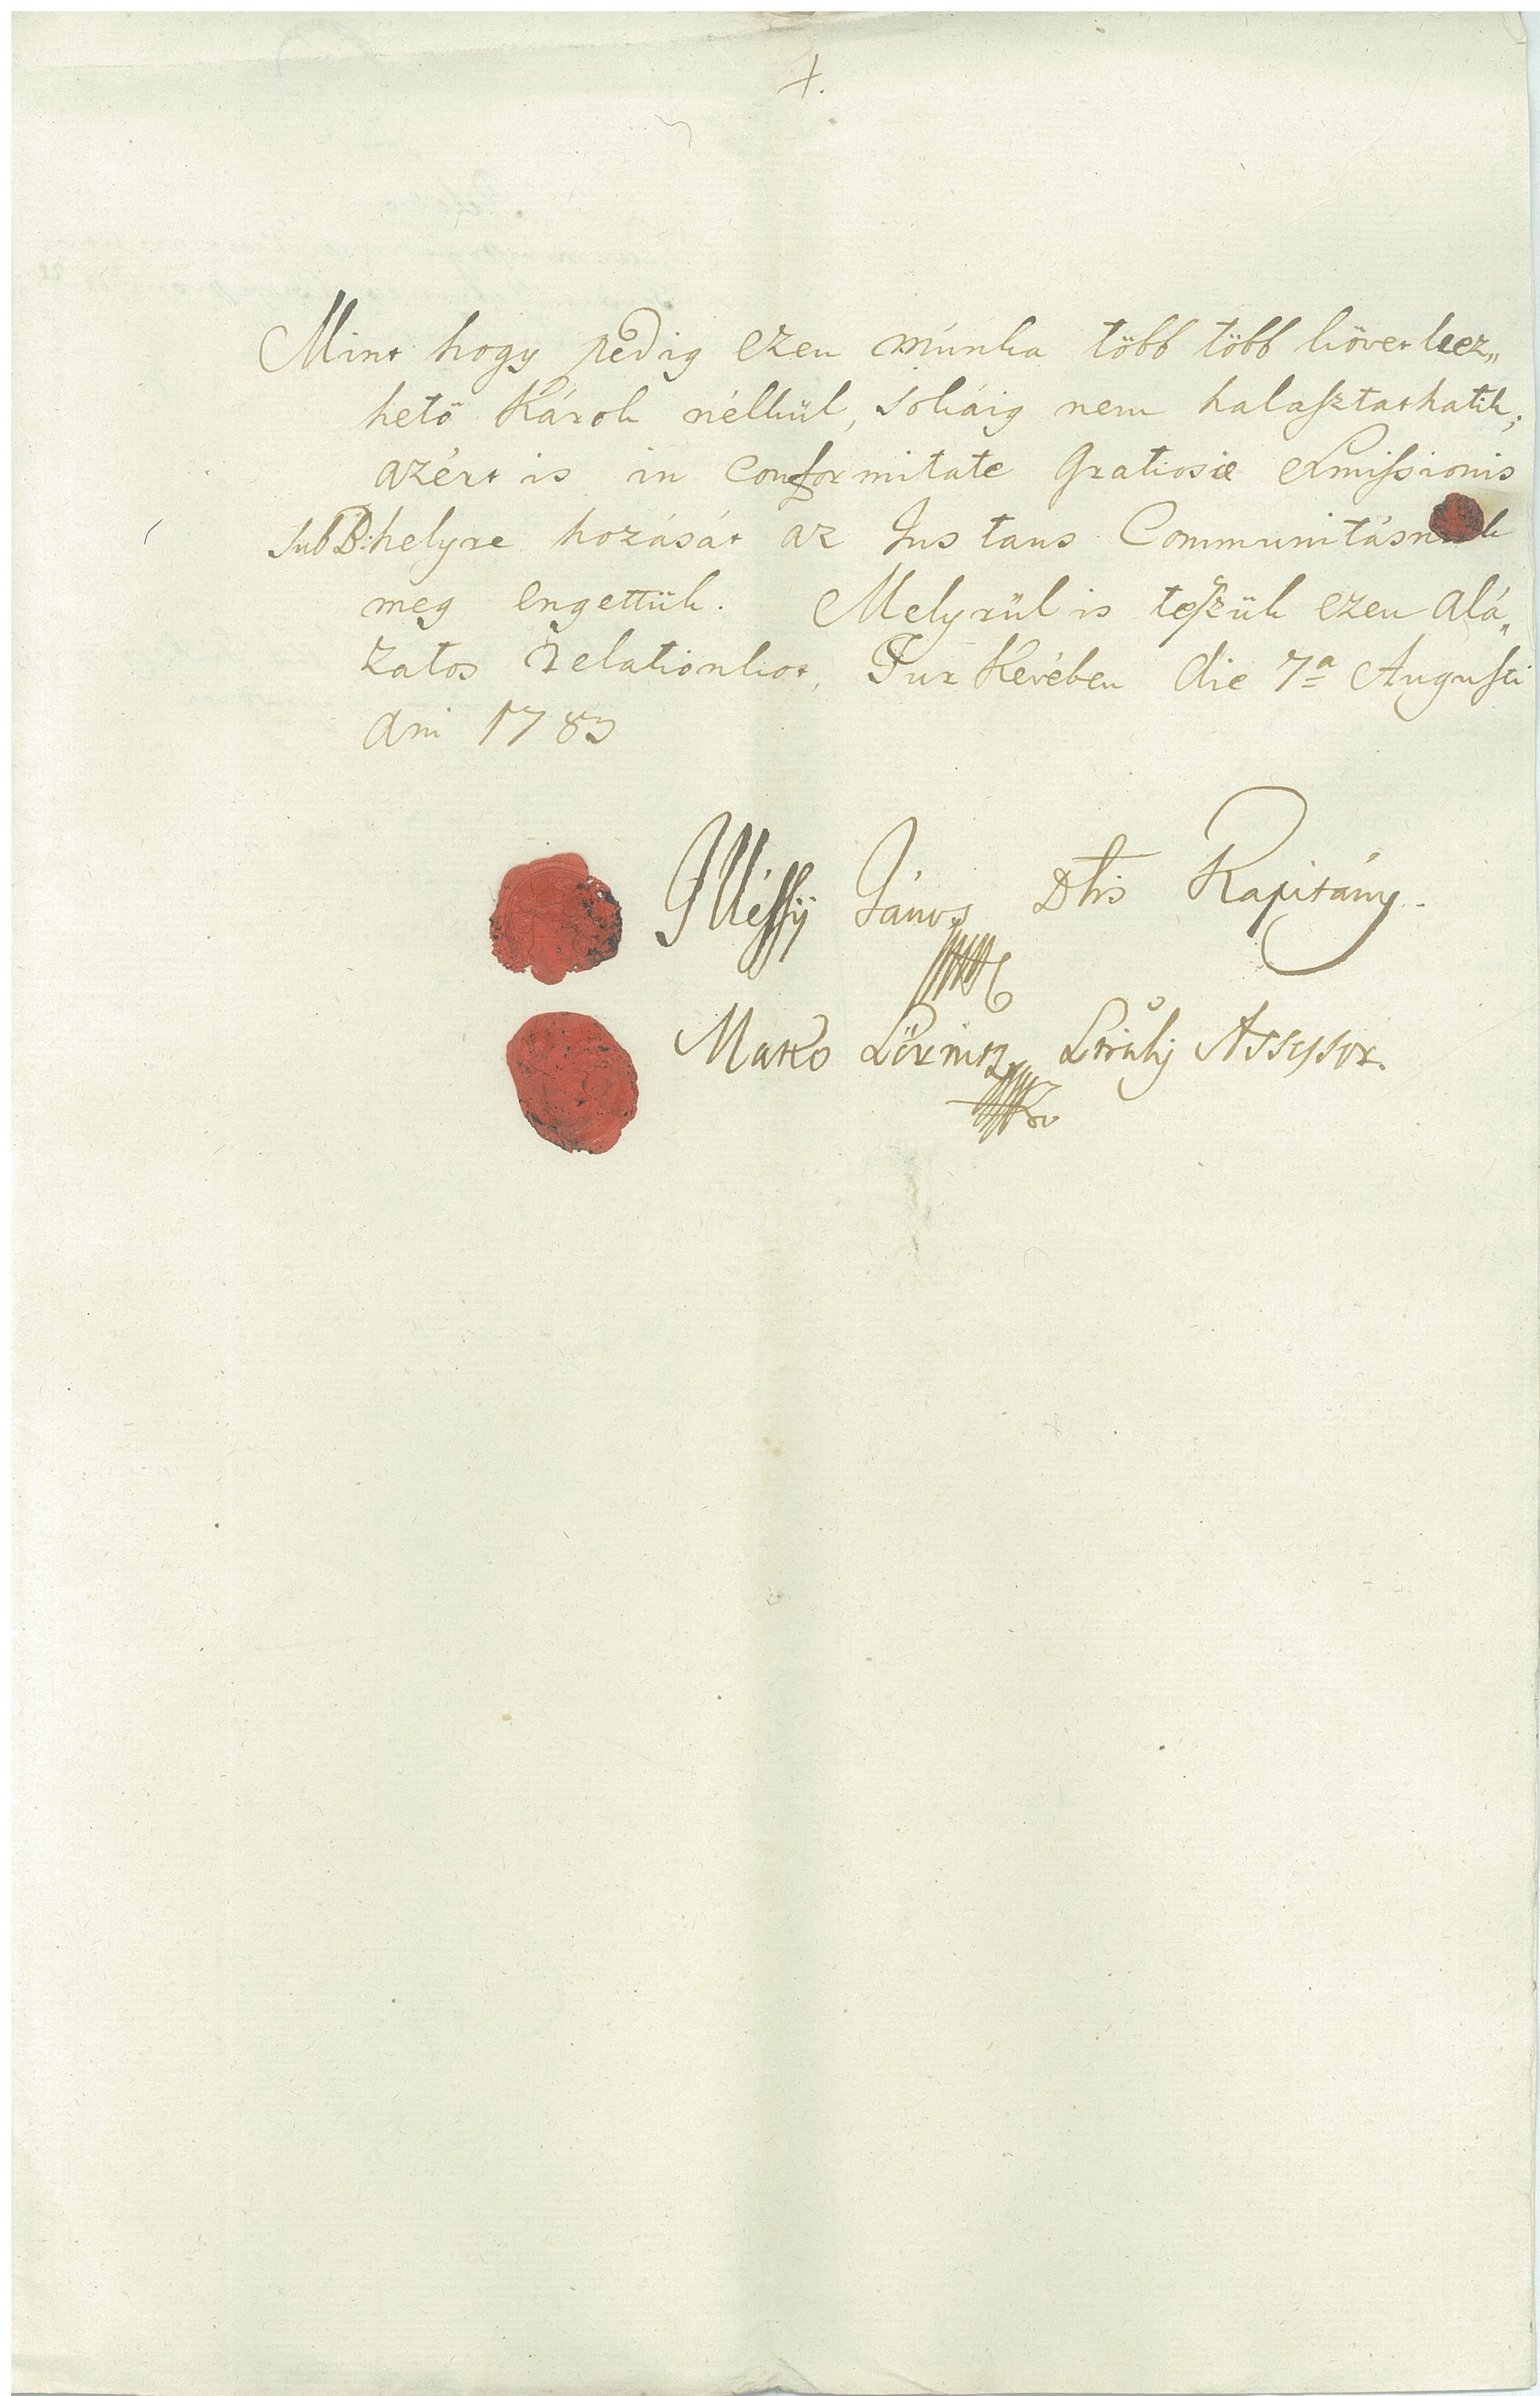 Mint hogy pedig ezen munka több több következ„
hető Károk nélkül, sokáig nem halasztathatik;
azért is in Conformitate Gratiosæ Exmissionis
Sub B: helyre hozását az Instans Communitásnak
meg engettük. Melyrül is teszük ezen alá„
zatos relationkot, Tur Kevében die 7ª Augusti
Ani 1783
Illéssÿ János Dtis Kapitány.
Matko Lörintz Assessor.